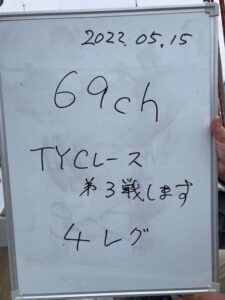 2022.05.15
69ch
TYCレース
第3戦します
4レグ